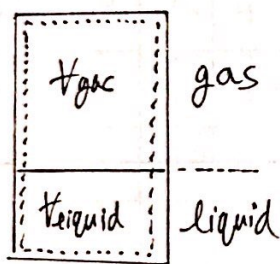 Vgas gas
Vliquid liquid